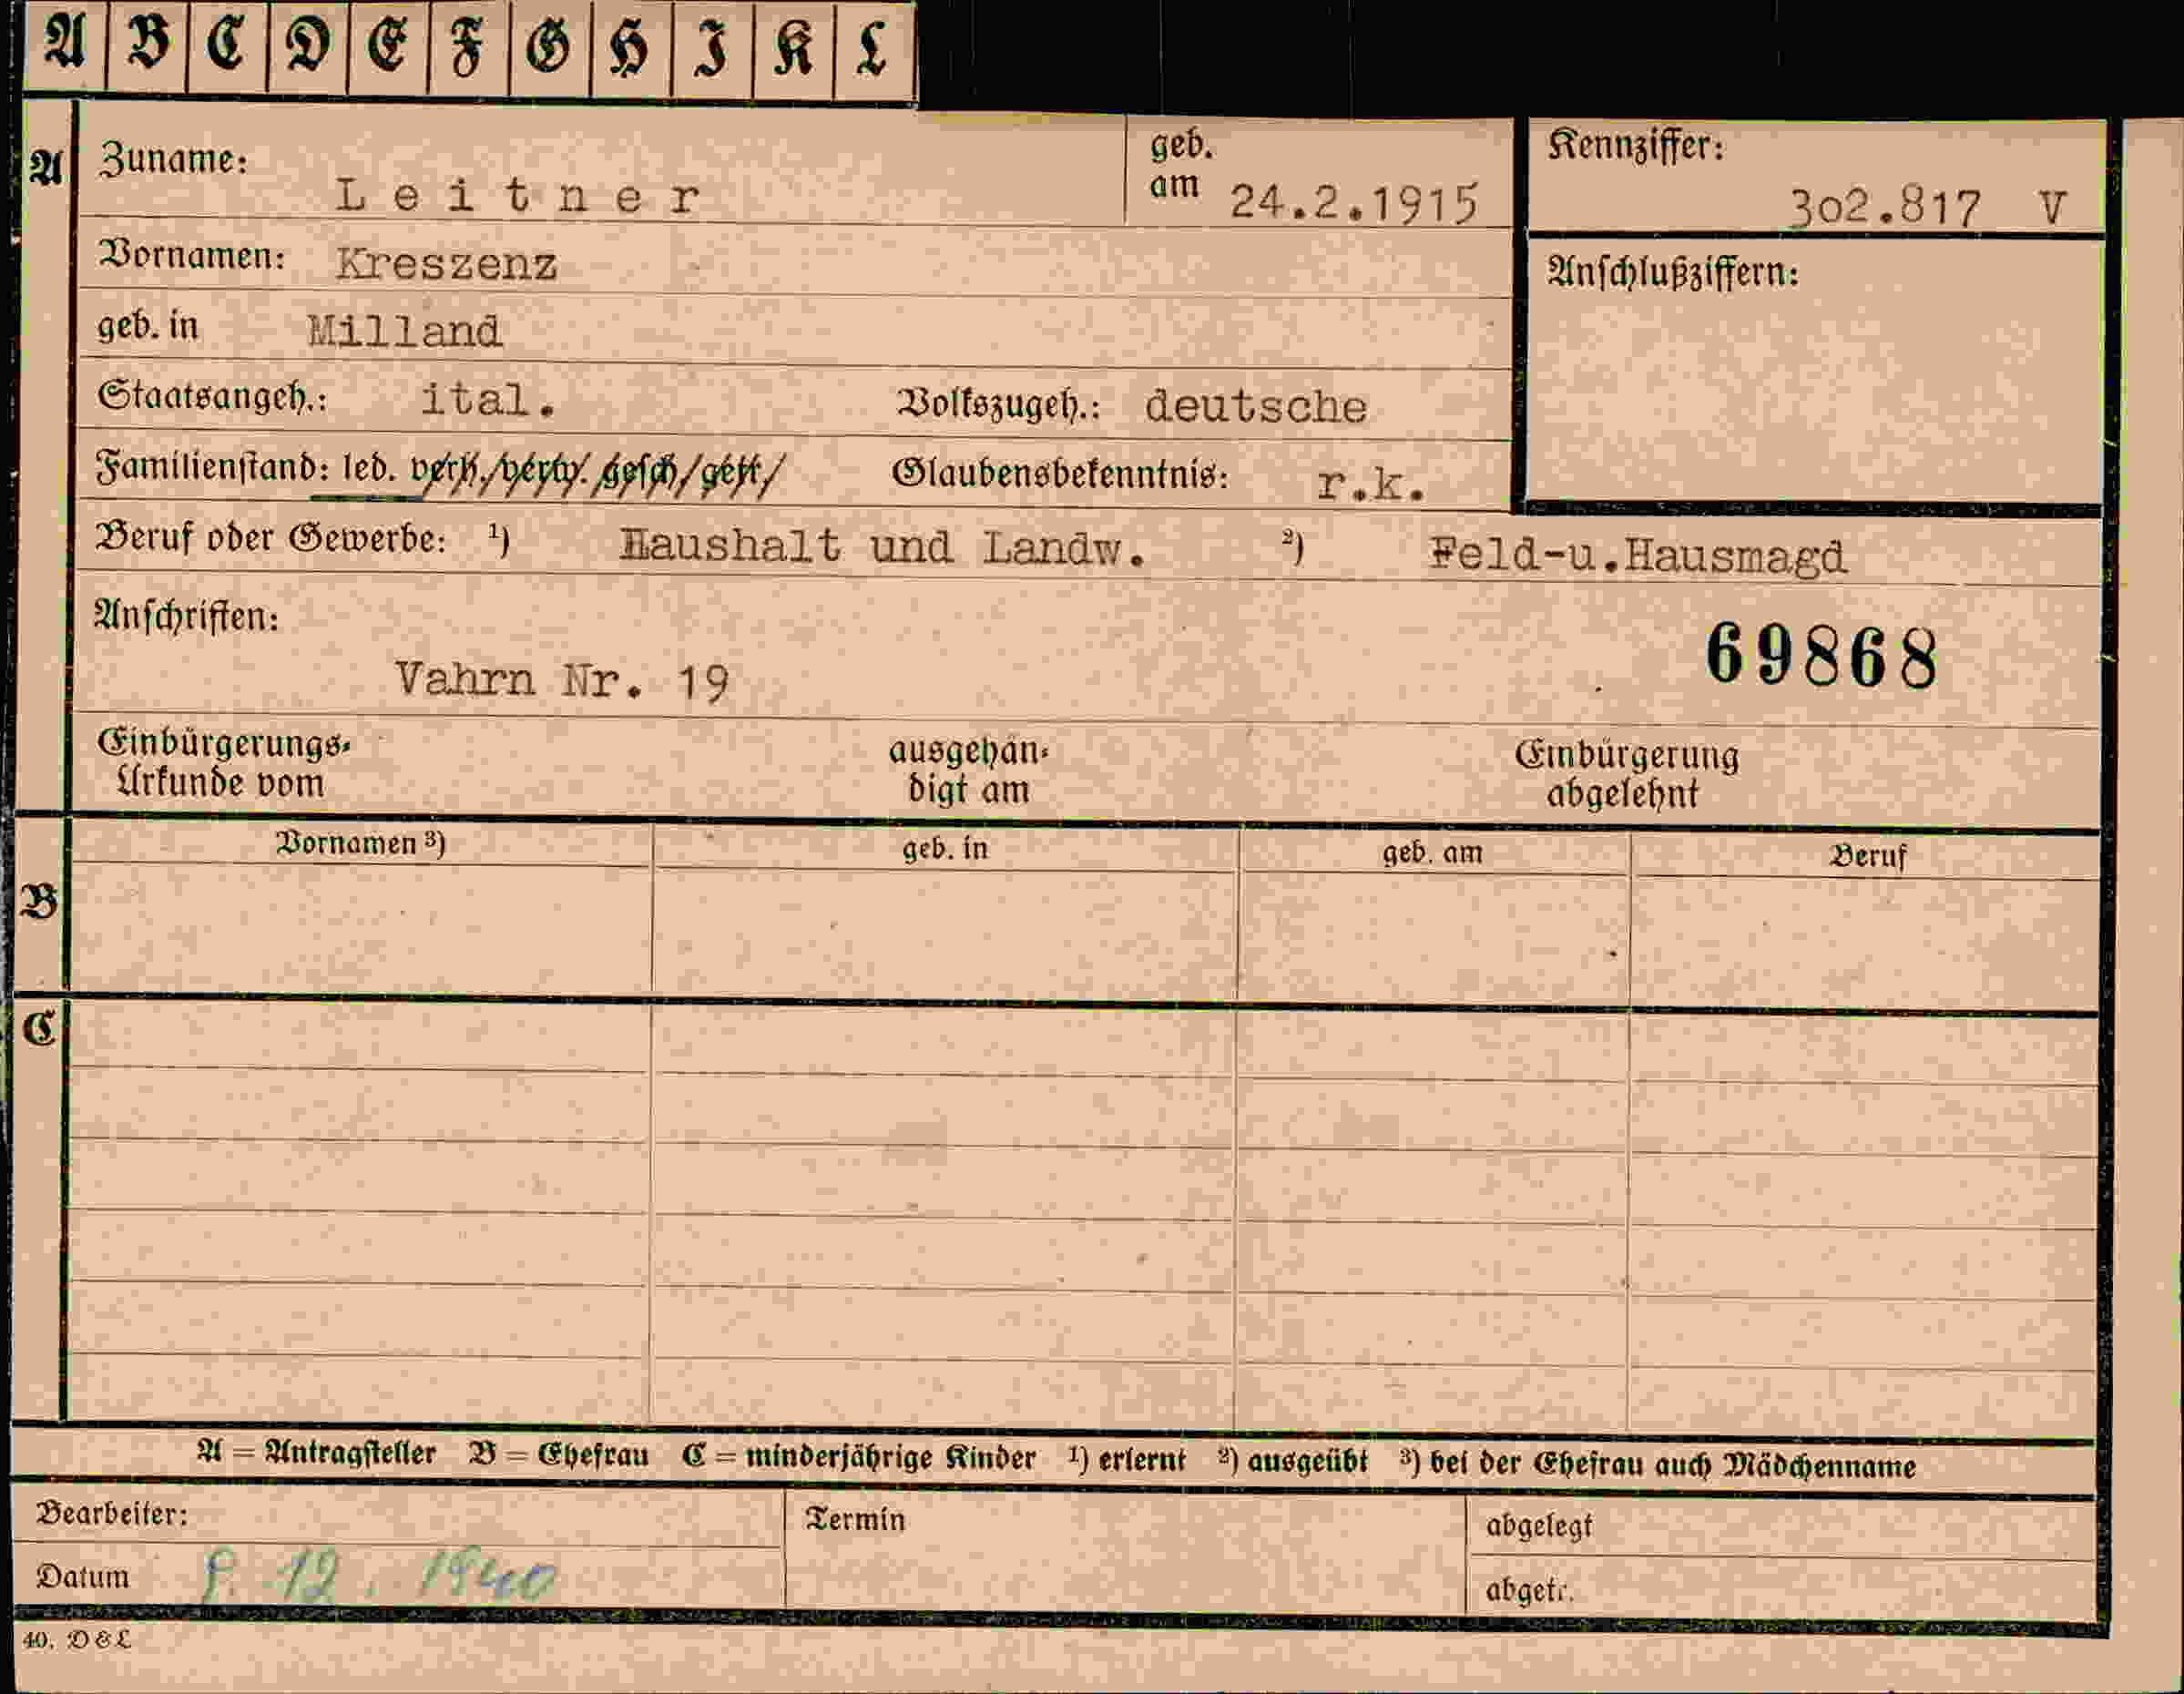 A B C D E F G H I K L
A Zuname: Leitner geb. am 24.2.1915 Kennziffer: 302.817 V
Vornamen: Kreszenz Anschlußziffern:
geb. in Milland
Staatsangeh.: ital. Volkszugeh.: deutsche
Familienstand: led. verh./verw. gesch/getr/ Glaubensbekenntnis: r.k.
Beruf oder Gewerbe: ¹) Haushalt und Landw. ²) Feld-u.Hausmagd
Anschriften:
69868
Vahrn Nr. 19
Einbürgerungs-
Urkunde vom
ausgehän-
digt am
Einbürgerung
abgelehnt
Vornamen ³) geb. in geb. am Beruf
B
C
A = Antragsteller B = Ehefrau C = minderjährige Kinder ¹) erlernt ²) ausgeübt ³) bei der Ehefrau auch Mädchenname
Bearbeiter: Termin abgelegt
Datum 12. 1940 abgetr.
40. D & L